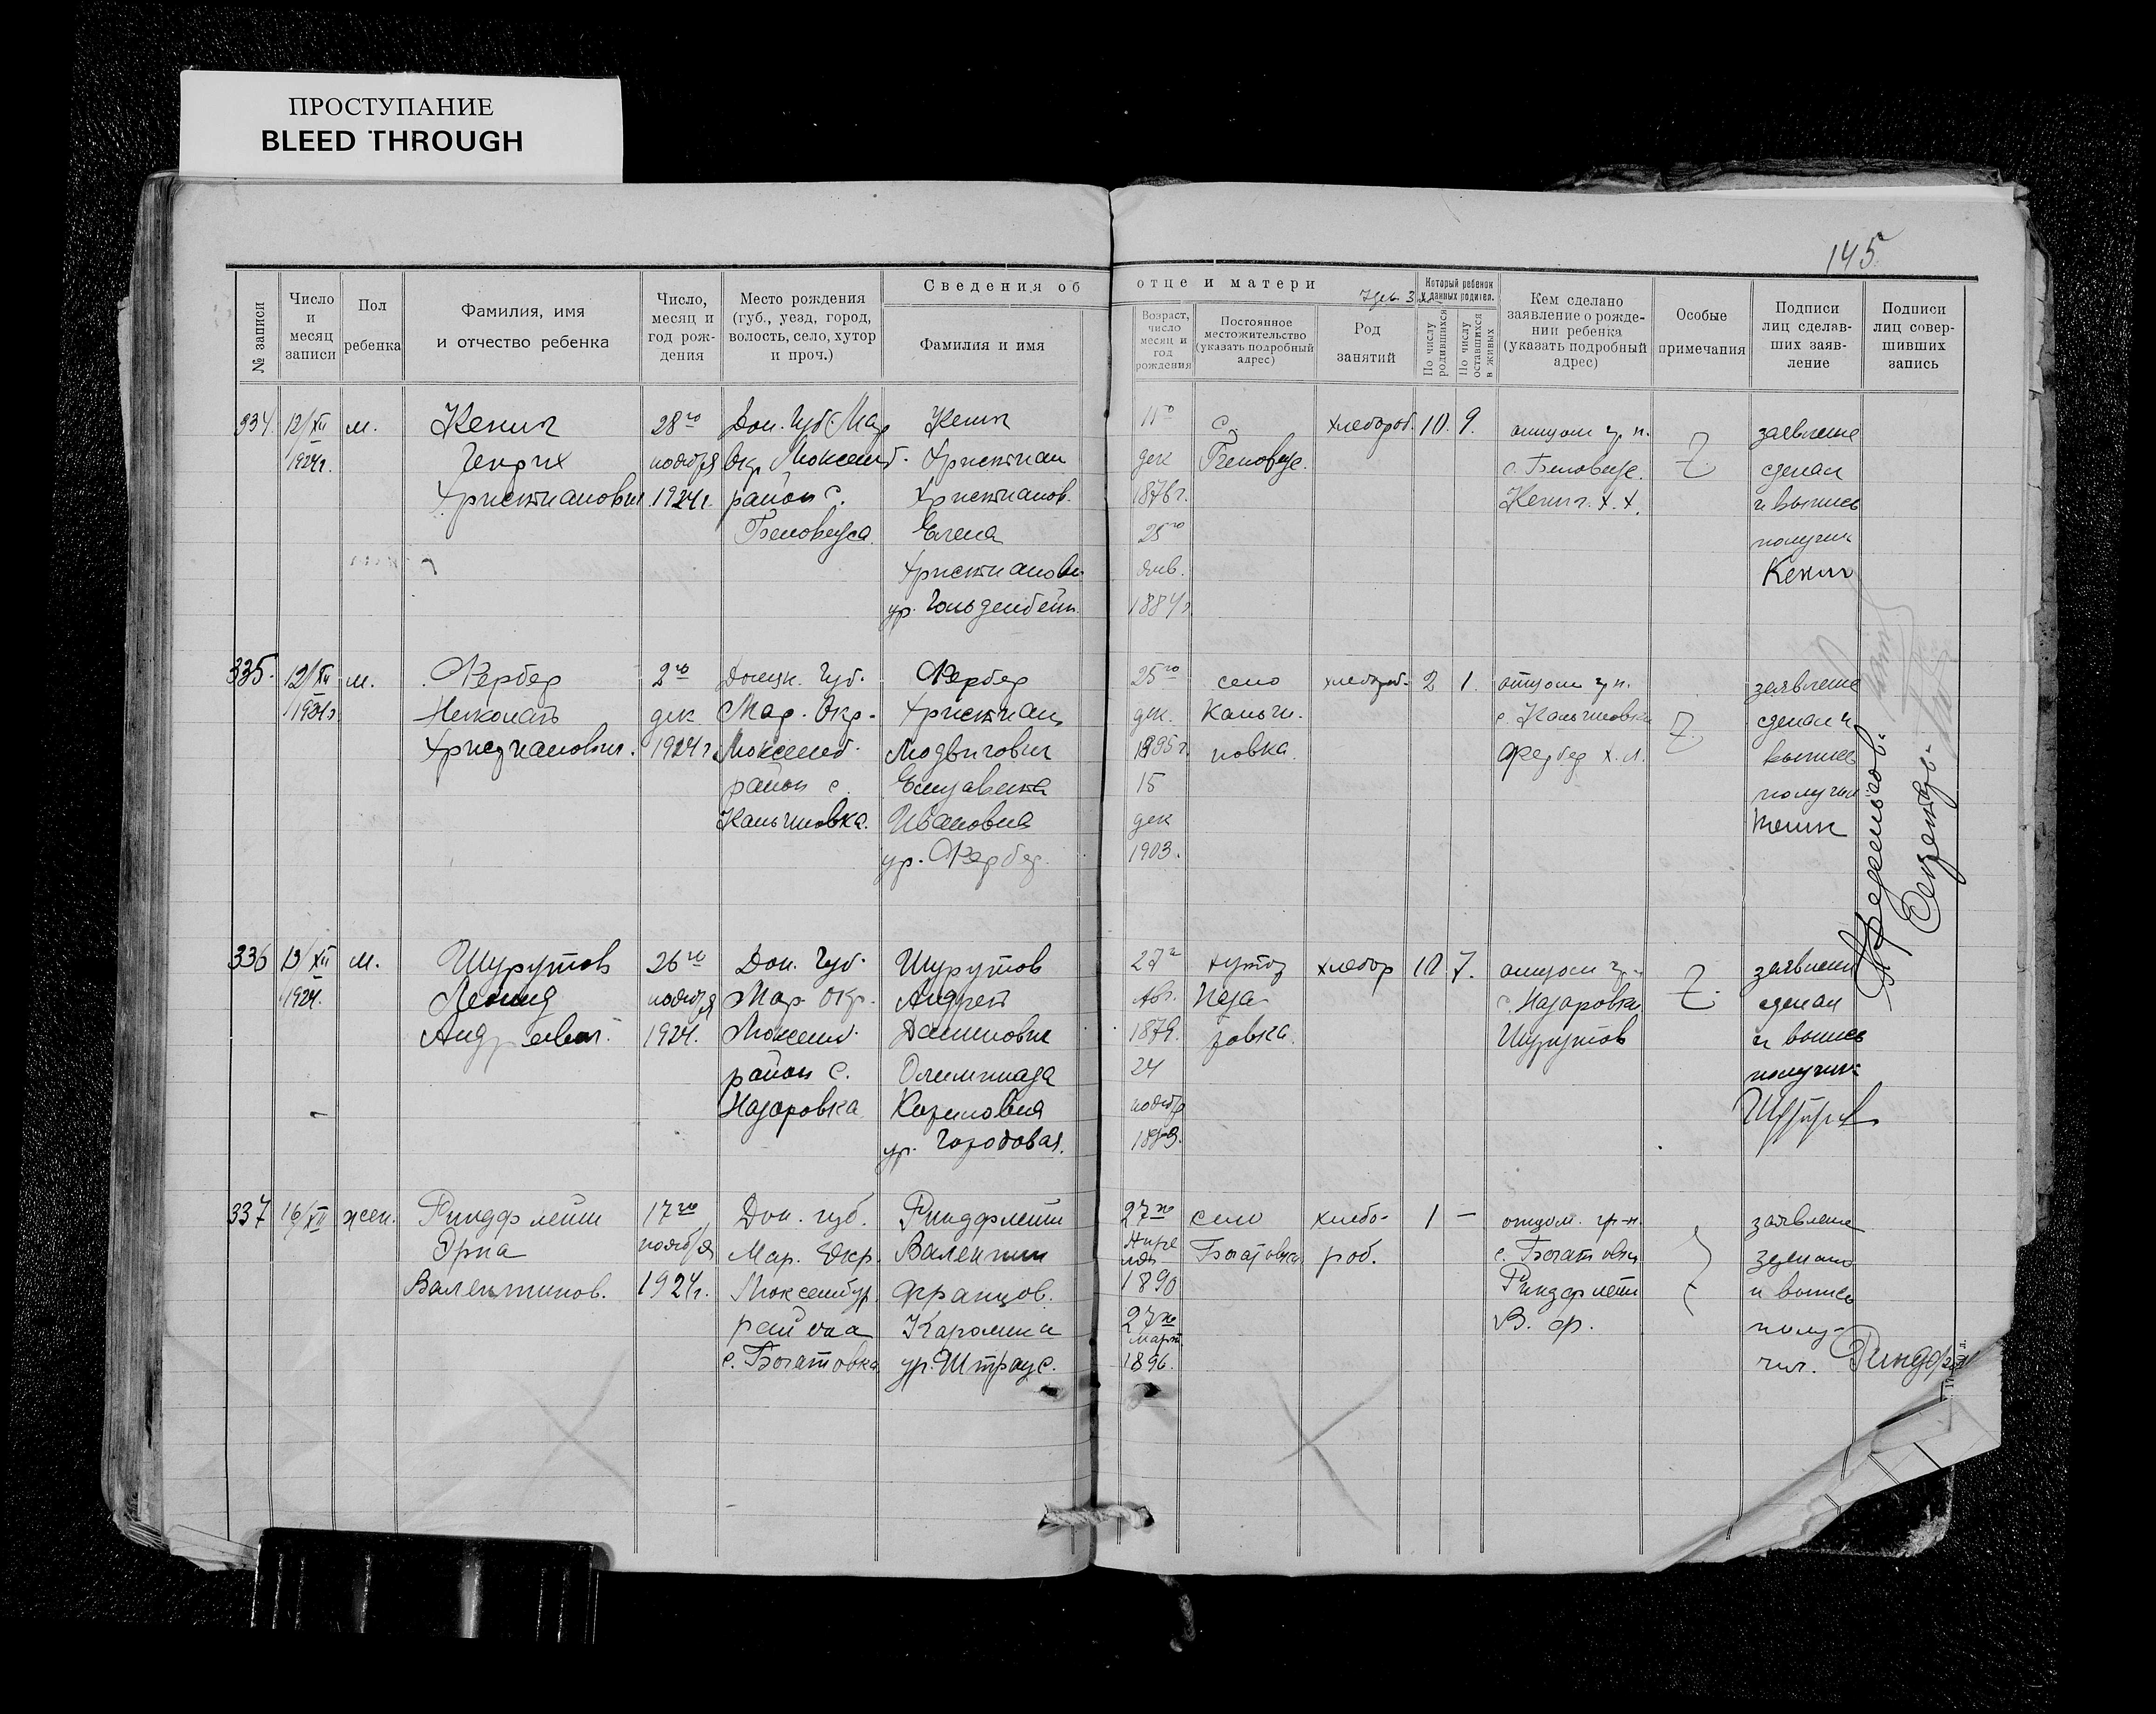 ПРОСТУПАНИЕ
BLEED THROUGH
145
№ записи
Число и месяц записи
Пол ребенка
Фамилия, имя и отчество ребенка
Число, месяц и год рождения
Место рождения (губ., уезд, город, волость, село, хутор и проч.)
Сведения об отце и матери
Фамилия и имя
Возраст, число месяц и год рождения
Постоянное местожительство (указать подробный адрес)
Род занятий
Который ребенок у данных родител.
По числу родившихся
По числу оставшихся в живых
Кем сделано заявление о рождении ребенка (указать подробный адрес)
Особые примечания
Подписи лиц сделавших заявление
Подписи лиц совершивших запись
334 12/XII м. Кениг 28го Дон. Губ. Мар Кениг 11го с. хлебороб. 10. 9. отцом гр. заявление
1924г. Генрих ноября Окр. Люксемб. Христиан дек Беловеж. с. Беловеж. сделал
Христианович 1924г. район с. Христианов. 1876г. Кениг. Х. Х. и выпись
Беловежа. Елена 25го получил
Христианов. янв. Кениг
ур. Гольденбейн. 1884г
335. 12/XII м. Фербер 2го Донецк. Губ. Фербер 25го село хлебороб. 2 1. отцом гр. заявление
1924г дек. Мар. Окр. Христиан дек. Кальчи- с. Кальчиновка сделал и
Христианович. 1924г Люксемб. Людвигович 1895г новка. Фербер Х. Л. выпись
район с. Елизавета 15 получил
Кальчиновка. Ивановна дек
ур. Фербер. 1903.
336 13/XII м. Шурутов 26го Дон. Губ. Шурутов 27г хутор хлебор 10 7. отцом гр. заявлени
1924. Леонид ноября Мар. Окр. Андрей Авг. Наза- с. Назаровка сделал
Андреевич. 1924. Люксемб. Данилович 1879. ровка. Шурутов и выпись
район с. Олимпиада 24 получил
Назаровка Кириловна ноябр
ур. Городовая.
337 16/XII жен. Риндфлейш 17го Дон. губ. Риндфлейш 27го село хлебо- 1 — отцом. гр-н. заявление
Эрна ноября Мар. Окр. Валентин Апреля Богатовка роб. с. Богатовки
Валентинов. 1924г. Люксембур. Францов. 1890 Риндфлейш и выпись
района Каролина 27го марта В. Ф. полу-
с. Богатовка ур. Штраус. 1896. чил. Риндфл